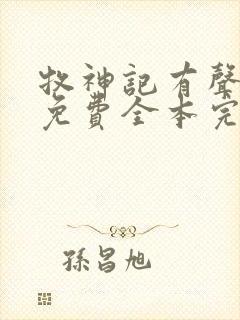 牧神記有聲
免費全本完
孫昌旭